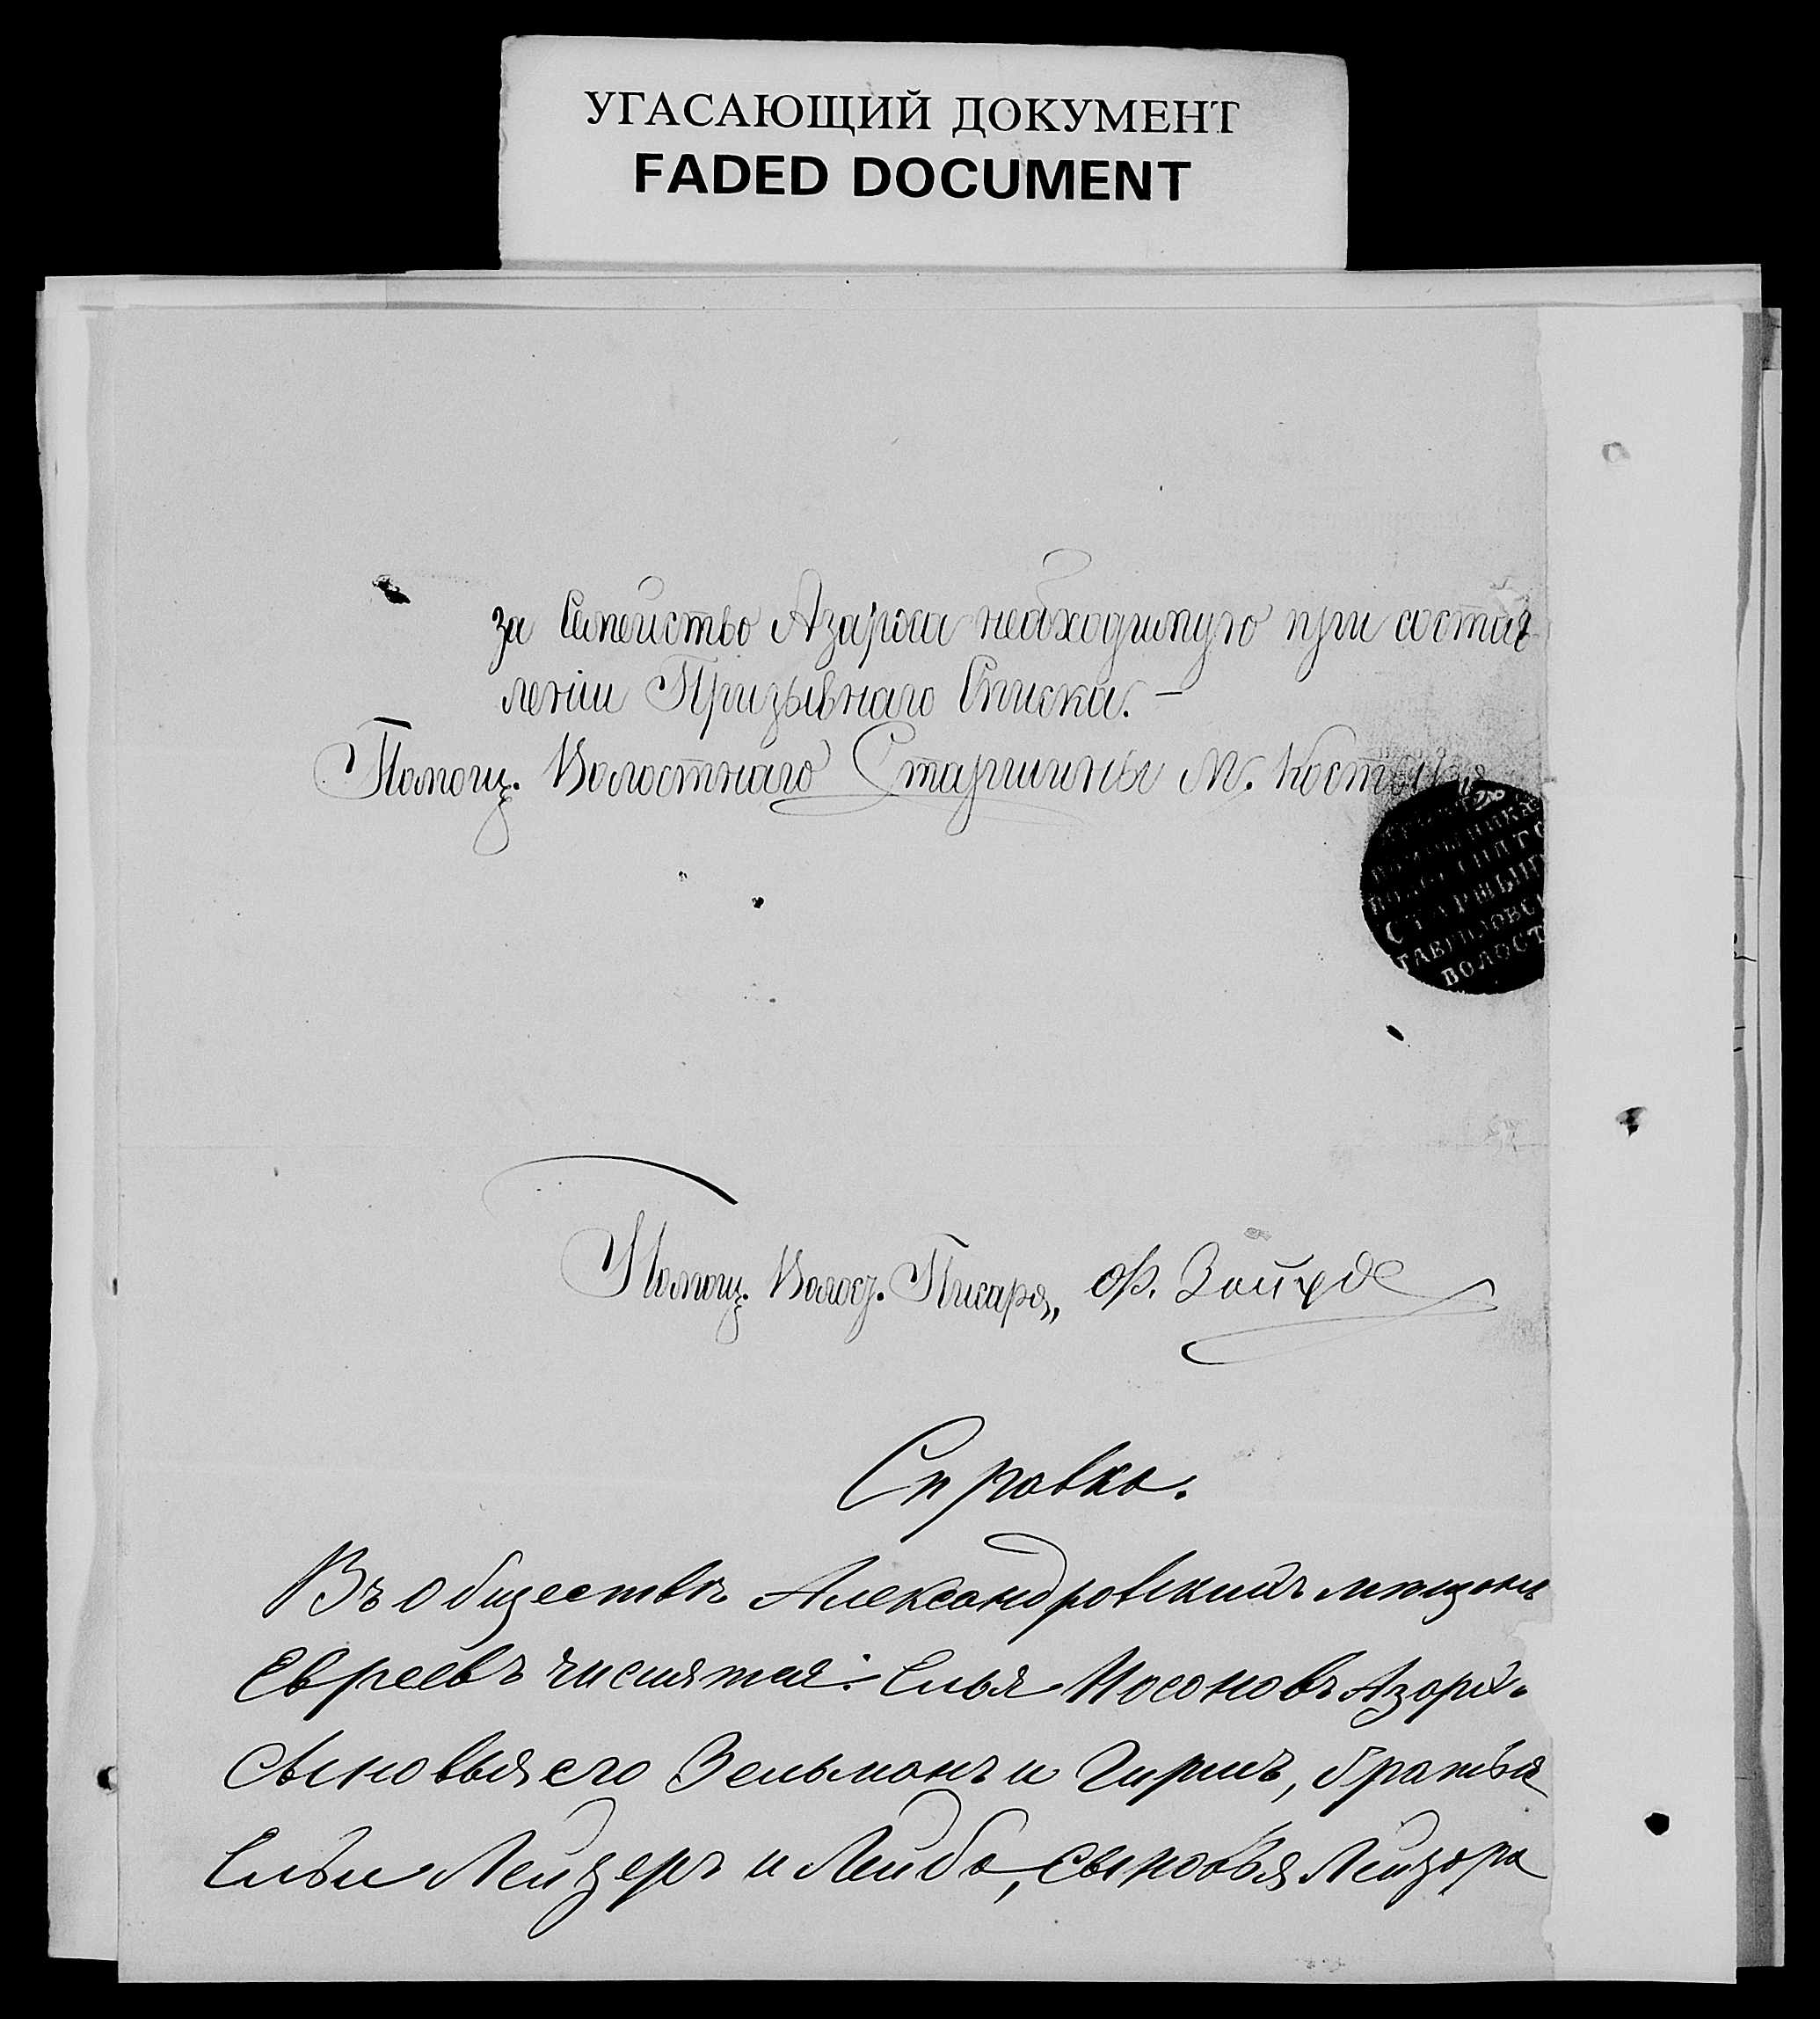 УГАСАЮЩИЙ ДОКУМЕНТ
FADED DOCUMENT
за Семейство Азарха необходимую при состав
леніи Призывнаго Списка. —
Помощ. Волостнаго Старшины М.
СТАРШИН
ВОЛОСТ
Помощ. Волос. Писаря,,
Справка.
Въ обществѣ Александровскихъ мѣщанъ
Евреевъ числятся: Елья Носоновъ Азархъ
сыновья его Зельманъ и Гиршъ, братья
Ельи Лейзеръ и Лейба, сыновья Лейзера